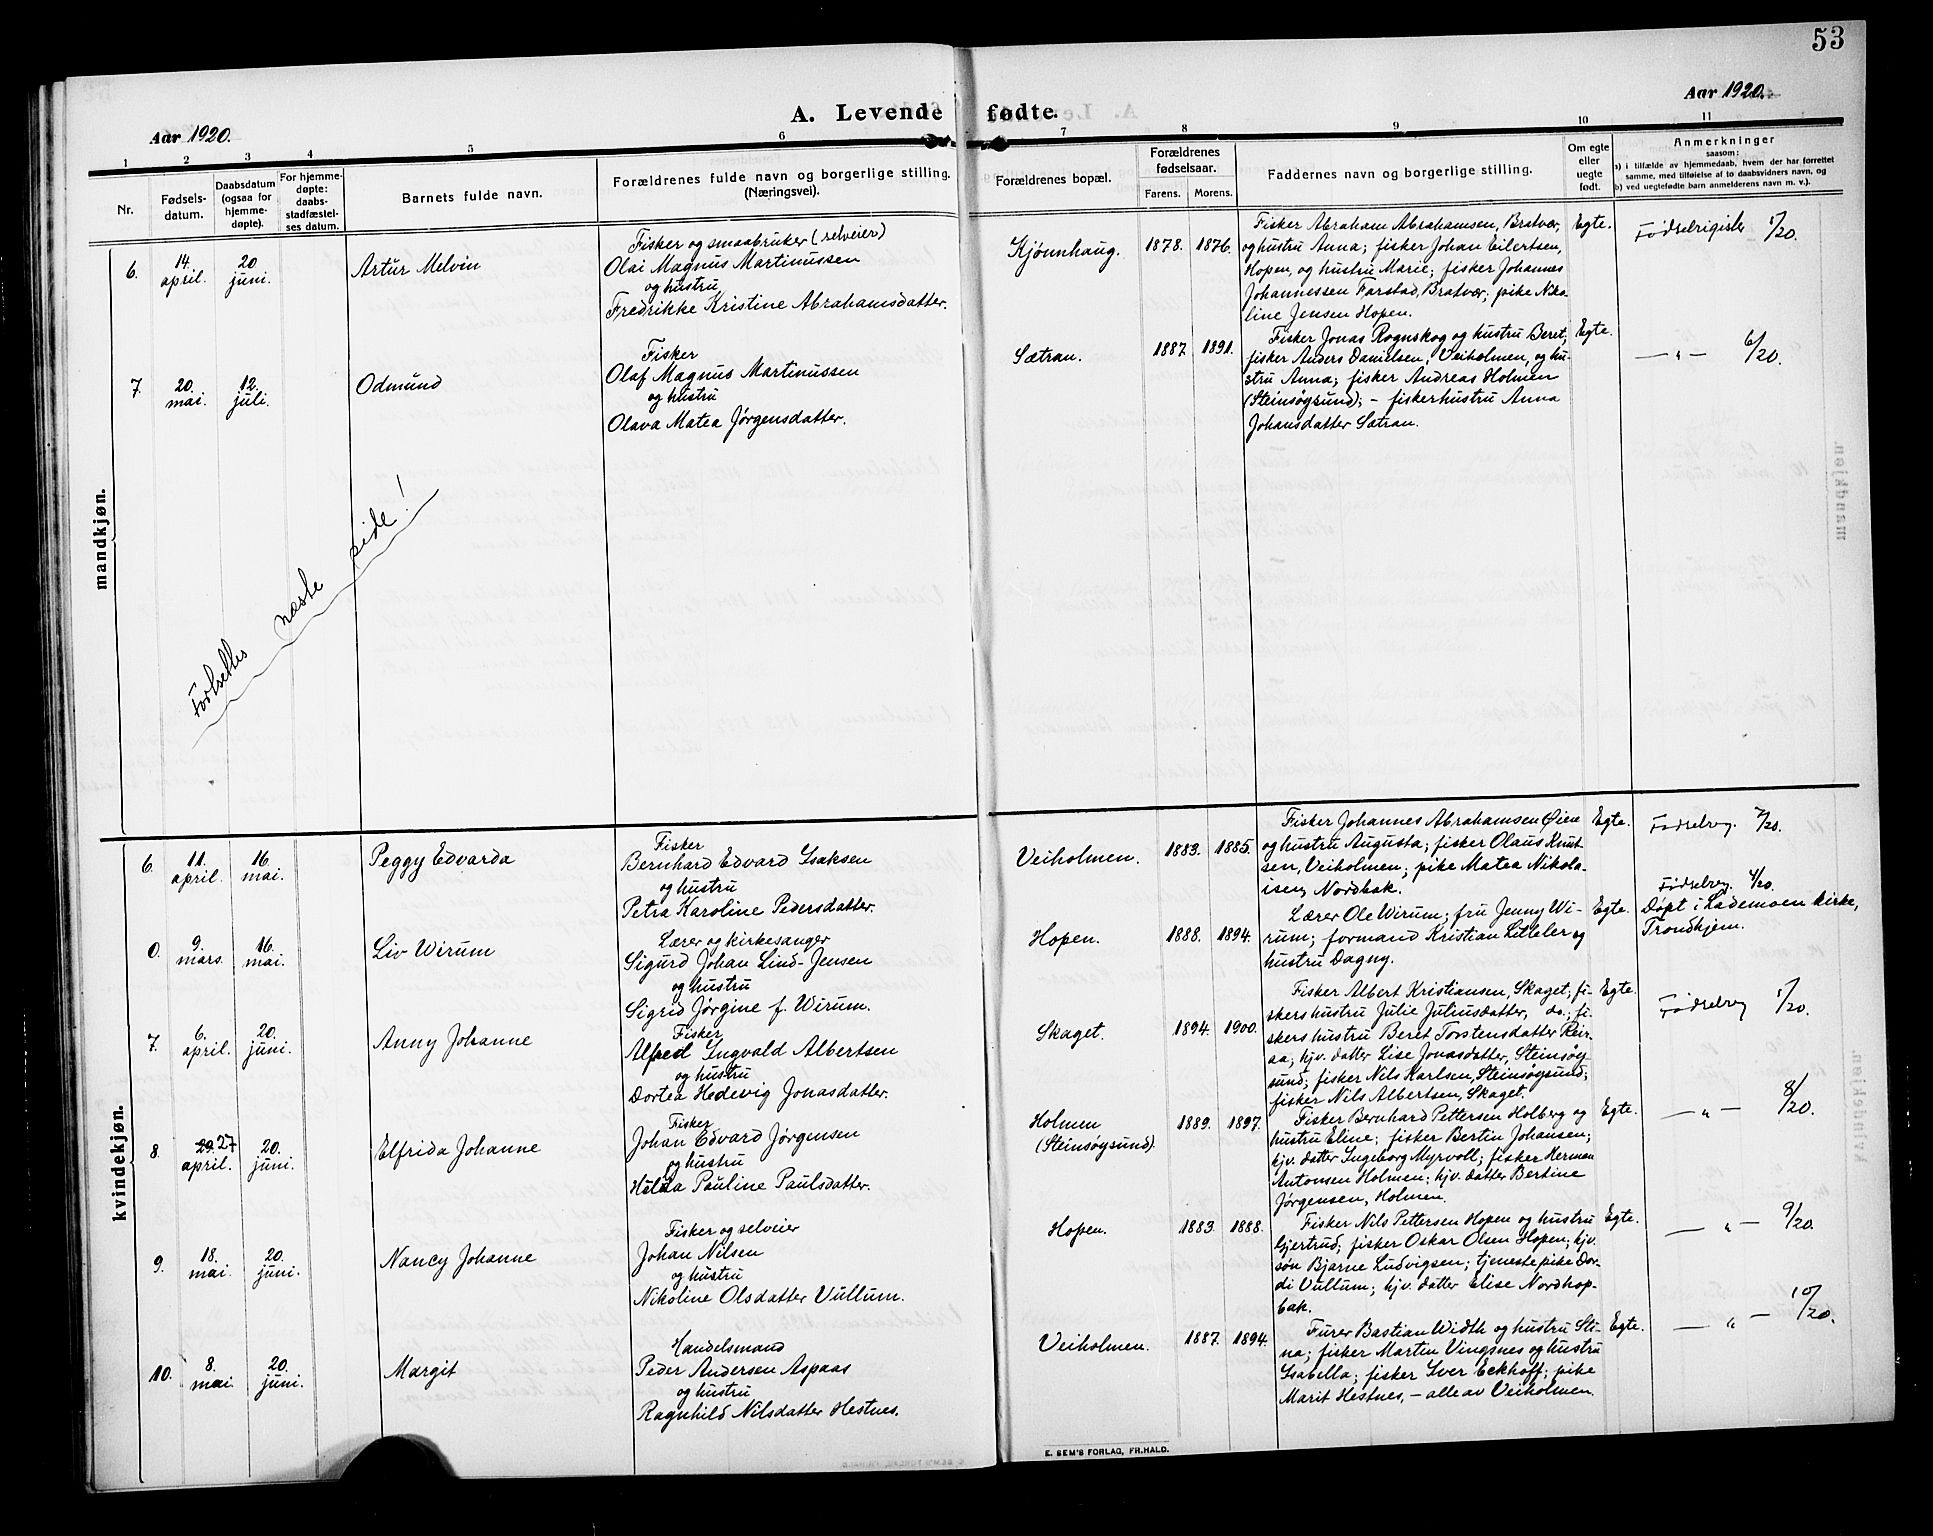 53
Aar 1920.
A. Levende fødte.
Aar 1920.
1 2 3 4 5 6 7 8 9 10 11
Nr.
Fødsels-
datum.
Daabsdatum
(ogsaa for
hjemme-
døpte).
For hjemme-
døpte:
daabs-
stadfæstel-
ses datum.
Barnets fulde navn.
Forældrenes fulde navn og borgerlige stilling.
(Næringsvei).
Forældrenes bopæl.
Forældrenes
fødselsaar.
Farens. Morens.
Faddernes navn og borgerlige stilling.
Om egte
eller
uegte
født.
Anmerkninger
saasom:
a) i tilfælde av hjemmedaab, hvem der har forrettet
samme, med tilføielse af to daabsvidners navn, og
b) ved uegtefødte barn anmelderens navn m. v.).
mandkjøn.
6.
14.
april.
20
juni.
Artur Melvin
Fisker og smaabruker (selveier)
Olai Magnus Martinussen
og hustru
Fredrikke Kristine Abrahamsdatter.
Kjønnhaug.
1878. 1876.
Fisker Abraham Abrahamsen, Bratvær,
og hustru Anna; fisker Johan Eilertsen,
Hopen, og hustru Marie; fisker Johannes
Johannessen Farstad, Bratvær; pike Niko-
line Jensen Hopen.
Egte.
Fødselrigister 5/20.
7.
20.
mai.
12.
juli.
Odmund
Fisker
Olaf Magnus Martinussen
og hustru
Olava Matea Jørgensdatter.
Sætran.
1887. 1891.
Fisker Jonas Rognskog og hustru Beret;
fisker Anders Danielsen, Veiholmen, og hu-
stru Anna; fisker Andreas Holmen
(Steinsøysund); - fiskerhustru Anna
Johansdatter Sætran.
Egte.
— „ — 6/20.
Fortsettes næste side!
kvindekjøn.
6.
11.
april.
16.
mai.
Peggy Edvarda
Fisker
Bernhard Edvard Isaksen
og hustru
Petra Karoline Pedersdatter.
Veiholmen.
1883. 1885.
Fisker Johannes Abrahamsen Øien
og hustru Augusta; fisker Olaus Knut-
sen, Veiholmen; pike Matea Nikola-
isen, Nordbak.
Egte.
Fødselreg. 7/20.
0.
9.
mars.
16.
mai.
Liv Wirum
Lærer og kirkesanger
Sigurd Johan Lind-Jensen
og hustru
Sigrid Jørgine f. Wirum.
Hopen.
1888. 1894.
Lærer Ole Wirum; fru Jenny Wi-
rum; formand Kristian Litleler og
hustru Dagny.
Egte.
Fødselreg. 4/20.
Døpt i Lademoen kirke,
Trondhjem.
7.
6.
april.
20.
juni.
Anny Johanne
Fisker
Alfred Ingvald Albertsen
og hustru
Dortea Hedevig Jonasdatter.
Skaget.
1894. 1900.
Fisker Albert Kristiansen, Skaget; fi-
skers hustru Julie Juliusdatter, do.; fi-
skers hustru Beret Torstensdatter Reir-
aa; hjv. datter Lise Jonasdatter, Steinsøy-
sund; fisker Nils Karlsen, Steinsøysund;
fisker Nils Albertsen, Skaget.
Egte.
Fødselreg 5/20.
8.
29. 27
april.
20.
juni.
Elfrida Johanne
Fisker
Johan Edvard Jørgensen
og hustru
Hilda Pauline Paulsdatter.
Holmen
(Steinsøysund).
1889. 1897.
Fisker Bernhard Pettersen Holberg og
hustru Eline; fisker Bertin Johansen;
hjv. datter Ingeborg Myrvoll; fisker Herman
Antonsen Holmen; hjv. datter Bertine
Jørgensen, Holmen.
Egte.
— „ — 8/20.
9.
18.
mai.
20.
juni.
Nancy Johanne
Fisker og selveier
Johan Nilsen
og hustru
Nikoline Olsdatter Vullum.
Hopen.
1883. 1888.
Fisker Nils Pettersen Hopen og hustru
Gjertrud; fisker Oskar Olsen Hopen; hjv.
søn Bjarne Ludvigsen; tjenestepike Dor-
di Vullum; hjv. datter Elise Nordhop-
bak.
Egte.
— „ — 9/20.
10.
8.
mai
20.
juni.
Margit
Handelsmand
Peder Andersen Aspaas
og hustru
Ragnhild Nilsdatter Hestnes.
Veiholmen.
1887. 1894.
Furer Bastian Width og hustru Sti-
na; fisker Martin Vingsnes og hustru
Isabella; fisker Iver Eckhoff; pike
Marit Hestnes, - alle av Veiholmen.
Egte.
— „ — 10/20.
E. SEM'S FORLAG, FR.HALD.